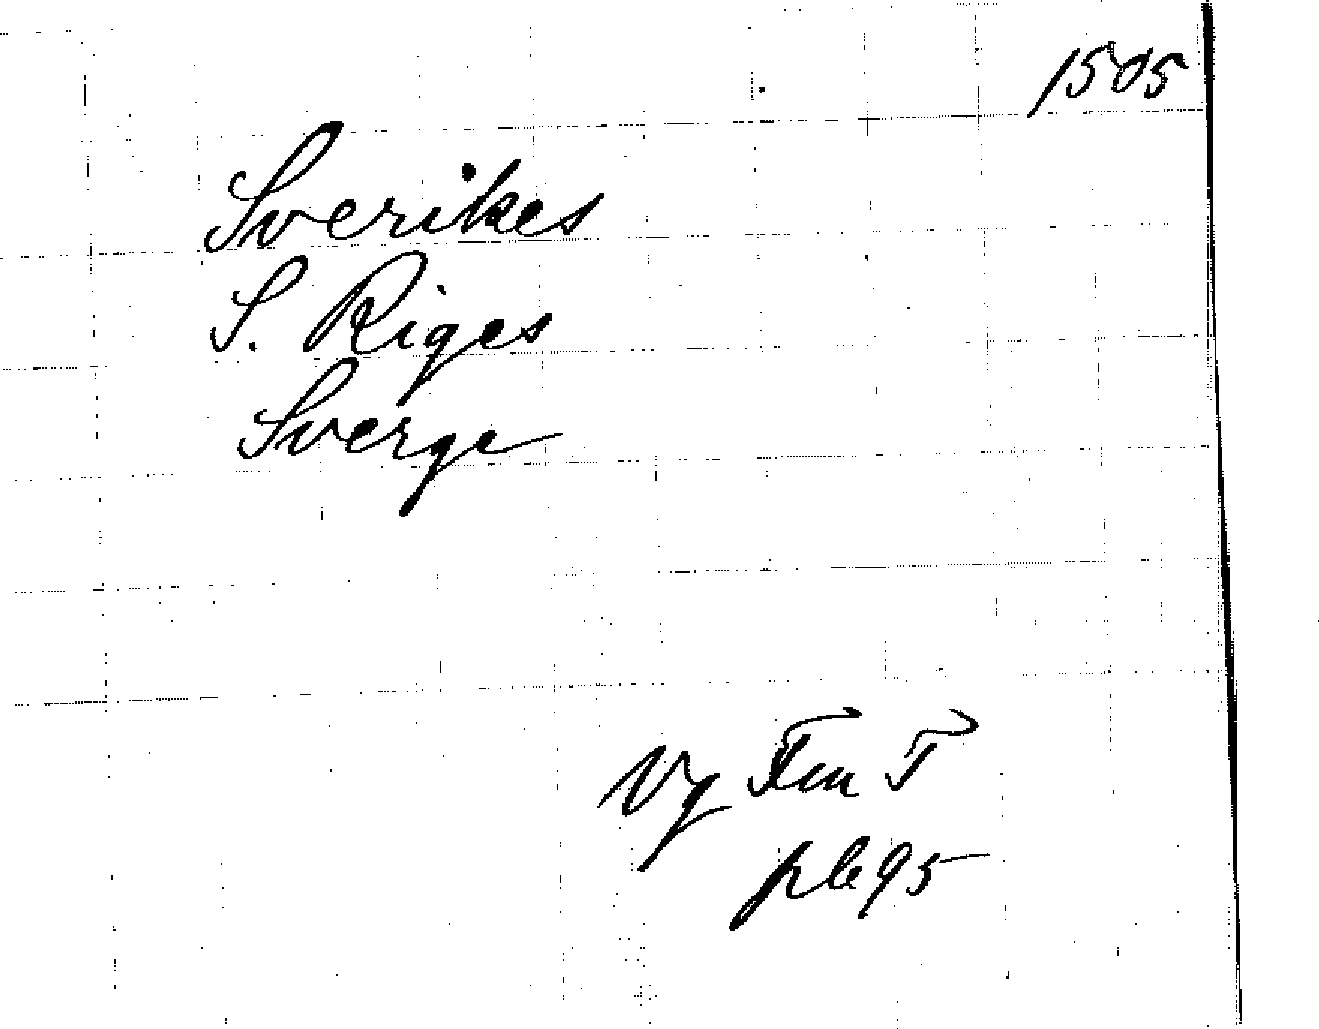 1505
Sverikes
S. Riges
Sverge
Vg Fm T
pl 95